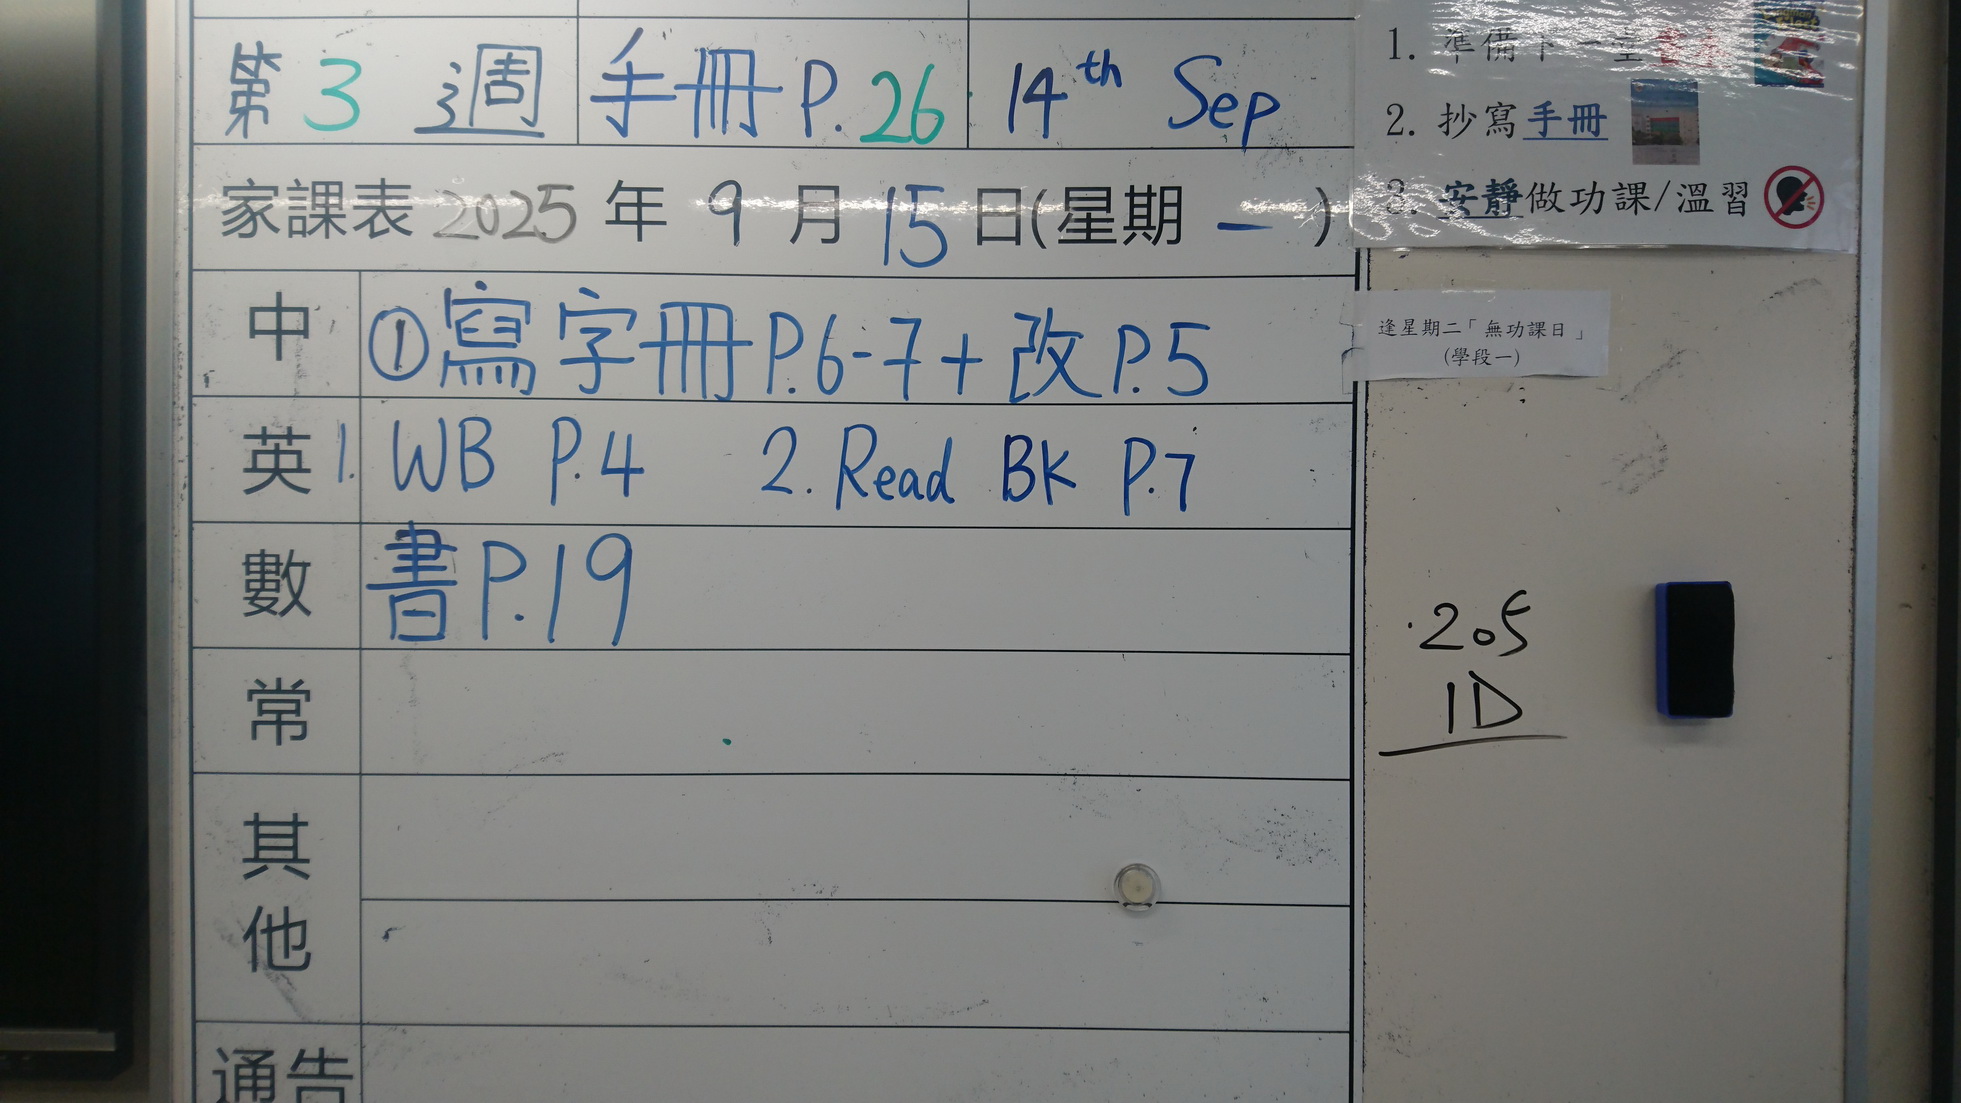 第 3 週 手冊 P.26 14th Sep
家課表 2025 年 9 月 15 日(星期 一 )
中 ①寫字冊 P.6-7 + 改 P.5
英 1. WB P.4 2. Read BK P.7
數 書 P.19
常
其他
通告
1. 準備下一堂
2. 抄寫手冊
3. 安靜做功課/溫習
逢星期二「無功課日」
(學段一)
205
1D